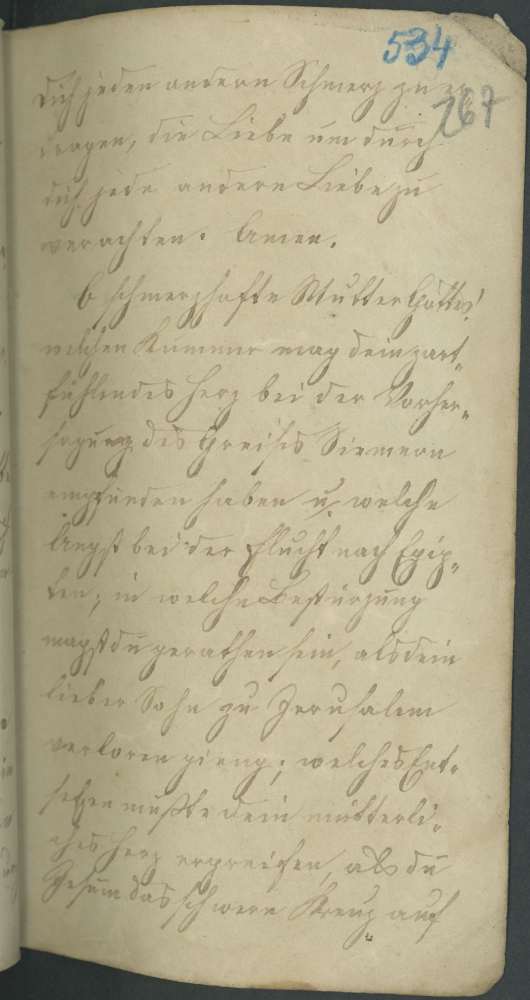 534
267
dich jeden andern Schmerz zu er
tragen, die Liebe um durch
dich jede andere Liebe zu
verachten. Amen.
O schmerzhafte Mutter Gottes!
welchen Kummer mag dein zart„
fühlendes Herz bei der Vorher„
sagung des Greises Siemeon
empfunden haben u. welche
Angst bei der Flucht nach Egip„
ten; in welche Bestürzung
magst du gerathen sein, als dein
lieber Sohn zu Jerusalem
verloren gieng; welches Ent„
setzen mußte dein mütterli„
ches Herz ergreifen, als du
Jesum das schwere Kreuz auf„